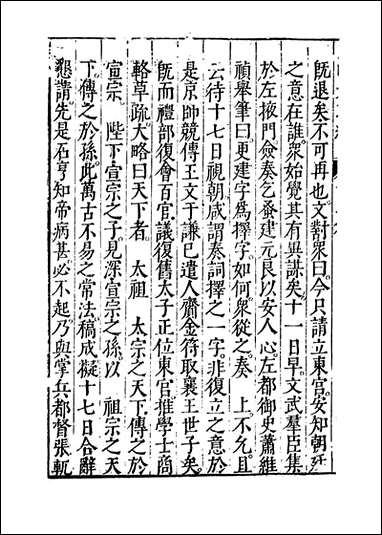 既退矣不可再也文對衆曰今只請立東宮安知朝廷
之意在誰衆始覺其有異謀矣十一日早文武羣臣集
於左掖門僉奏乞蚤建元良以安人心左都御史蕭維
禎舉筆曰更建字爲擇字如何衆從之奏 上不允且
云待十七日視朝咸謂奏詞擇之一字非復立之意於
是京師競傳王文于謙已遣人齎金符取襄王世子矣
旣而禮部復會百官議復舊太子正位東宮推學士商
輅草疏大略曰天下者 太祖 太宗之天下傳之於
宣宗 陛下宣宗之子見深宣宗之孫以 祖宗之天
下傳之於孫此萬古不易之常法稿成擬十七日合辭
懇請先是石亨知帝病甚必不起乃與掌兵都督張軏